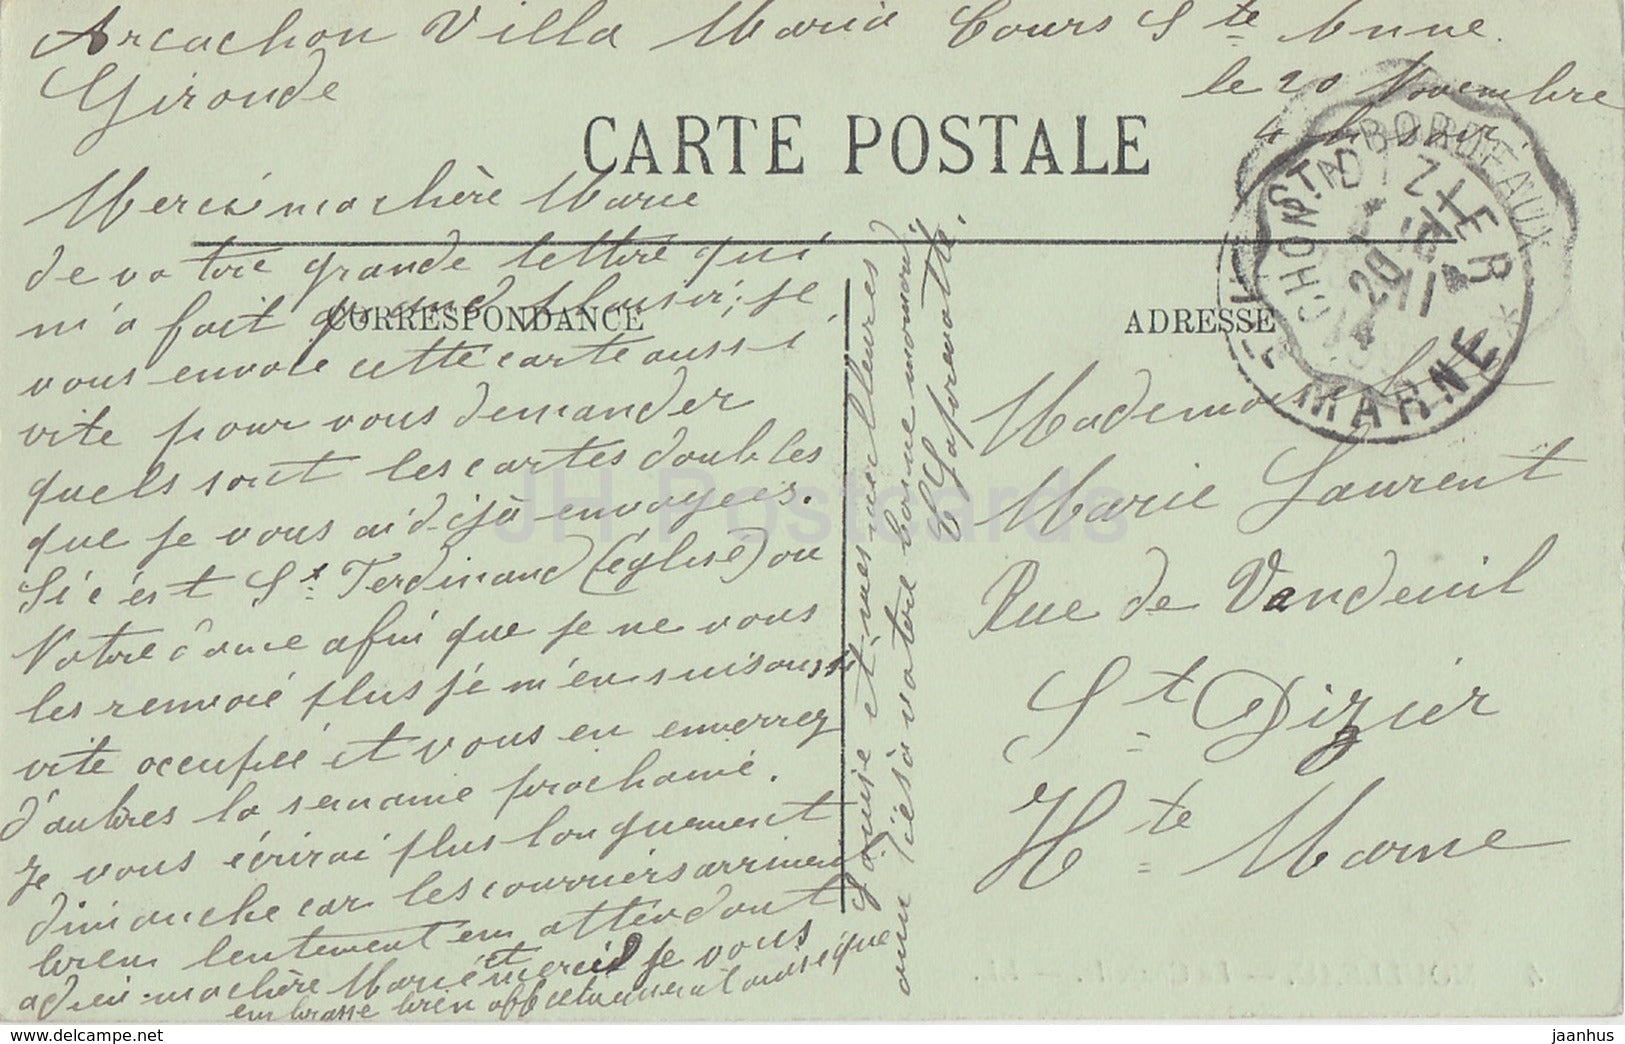 Arcachon Villa Maria Cours Ste Anne.
Gironde
le 20 Novembre
4 h soir
CARTE POSTALE
Merci ma chère Marie
de votre grande lettre qui
m'a fait grand plaisir; je
CORRESPONDANCE
vous envoie cette carte aussi
vite pour vous demander
quels sont les cartes doubles
que je vous ai déjà envoyées.
Si c'est St Ferdinand (église) ou
Notre dame afin que je ne vous
les renvoie plus je m'en suis aussi
vite occupée et vous en enverrez
d'autres la semaine prochaine.
Je vous écrirai plus longuement
dimanche car les courriers arrivent
bien lentement en attendant
adieu ma chère Marie et merci je vous
embrasse bien affectueusement ainsi que
Louise et mes meilleures
amitiés à votre bonne maman
C Laforevotte.
ADRESSE
Mademoiselle
Marie Laurent
Rue de Vandeuil
St Dizier
Hte Marne
BORDEAUX
ST DIZIER
20 11
HTE MARNE
JH Postcards
www.delcampe.net
jaanhus